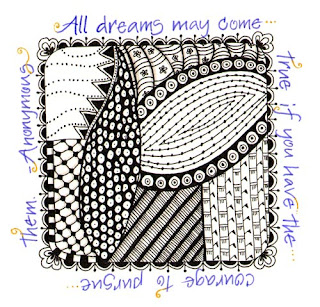 All dreams may come...
true if you have the...
courage to pursue...
them. -Anonymous